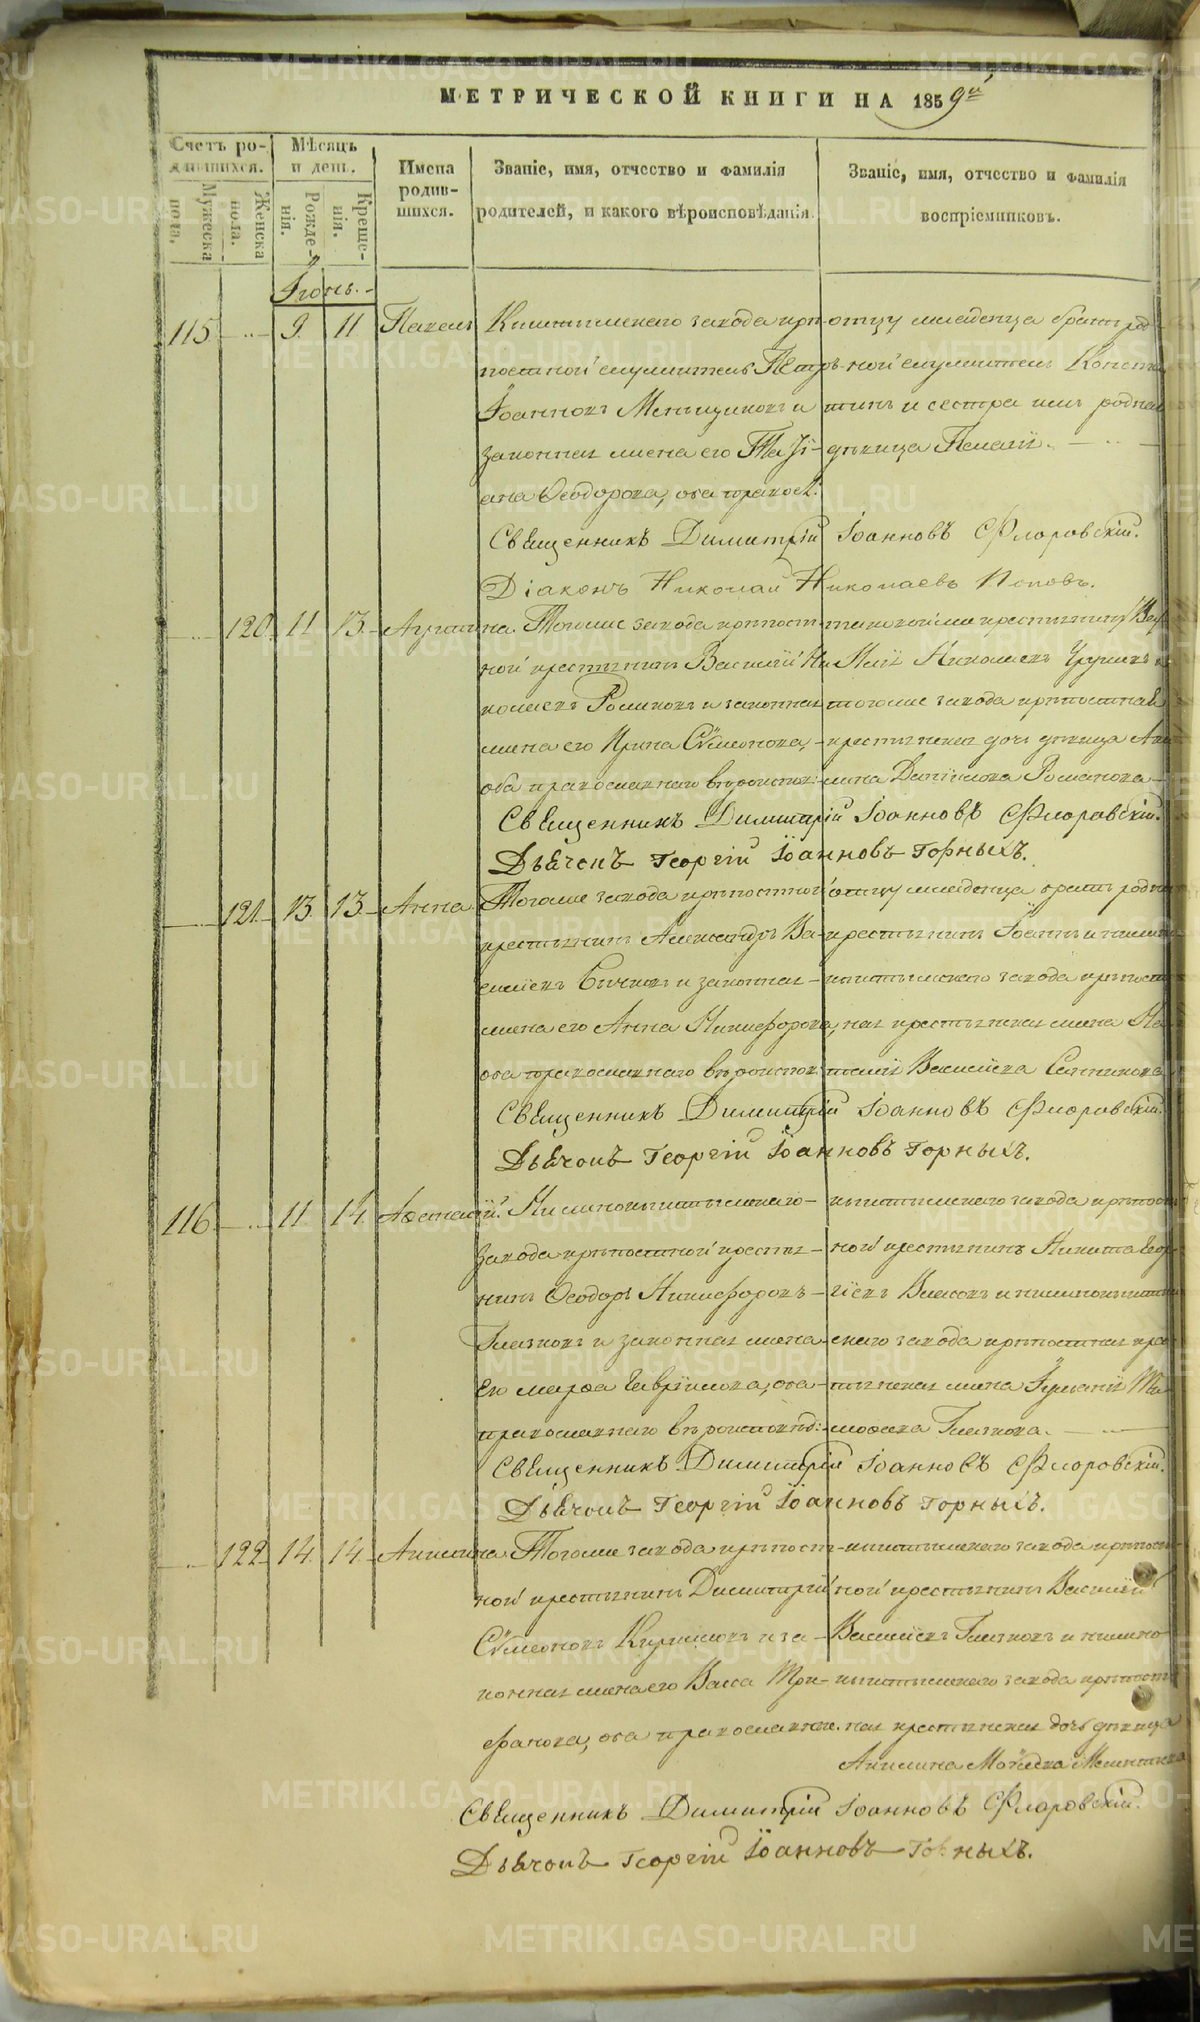 МЕТРИЧЕСКОЙ КНИГИ НА 1859й
Счетъ ро-
дившихся.
Мужеска
пола.
Женска
пола.
Мѣсяцъ
и день.
Рожде-
нія.
Креще-
нія.
Имена
родив-
шихся.
Званіе, имя, отчество и фамилія
родителей, и какого вѣроисповѣданія.
Званіе, имя, отчество и фамилія
воспріемниковъ.
Іюнь.
115 9. 11 Павелъ Кыштымскаго завода крѣ-
постной служитель Петръ
Іоанновъ Меньщиковъ и
законная жена его Татіі-
ана Ѳеодорова, оба правосл:
отцу младенца братъ род-
ной служитель Констан
тинъ и сестра имъ родная
дѣвица Пелагія.
Священникъ Димитрій Іоанновъ Флоровскій.
Діаконъ Николай Николаевъ Поповъ.
120 11 13 Тогоже завода крѣпост-
ной крестьянинъ Василій Ни
колаевъ и законная
жена его Ирина Сѵмеонова,
оба православнаго вѣроиспов:
тогоже завода крѣпостная
крестьянская дочь дѣвица
Романова
Священникъ Димитрій Іоанновъ Флоровскій.
Дьячокъ Георгій Іоанновъ Горныхъ.
121 13. 13 Анна Тогоже завода крѣпостной
крестьянинъ Александръ Ва-
сильевъ и законная
жена его Анна Никифорова,
оба православнаго вѣроиспов:
отцу младенца братъ родной
крестьянинъ Іоаннъ и нижне
кыштымскаго завода крѣпост
ная крестьянская жена На
талія Васильева
Священникъ Димитрій Іоанновъ Флоровскій.
Дьячокъ Георгій Іоанновъ Горныхъ.
116 11 14 Аѳанасій. Нижнекыштымскаго
завода крѣпостной крестья-
нинъ Ѳеодоръ Никифоровъ
Глазковъ и законная жена
его Марѳа Гавріилова, оба
православнаго вѣроисповѣд:
кыштымскаго завода крѣпост
ной крестьянинъ Никита Геор
гіевъ Власовъ и нижнекыштым
скаго завода крѣпостная кре
стьянская жена Іуліанія Ти
моѳеева Глазкова.
Священникъ Димитрій Іоанновъ Флоровскій.
Дьячокъ Георгій Іоанновъ Горныхъ.
122 14. 14 Акилина Тогоже завода крѣпост
ной крестьянинъ Димитрій
Сѵмеоновъ Кириловъ и за-
конная жена его Васса Три-
фанова, оба православн.
кыштымскаго завода крѣпост
ной крестьянинъ Василій
Васильевъ Глазковъ и нижне
кыштымскаго завода крѣпост
ная крестьянская дочь дѣвица
Акилина
Священникъ Димитрій Іоанновъ Флоровскій.
Дьячокъ Георгій Іоанновъ Горныхъ.
METRIKI.GASO-URAL.RU